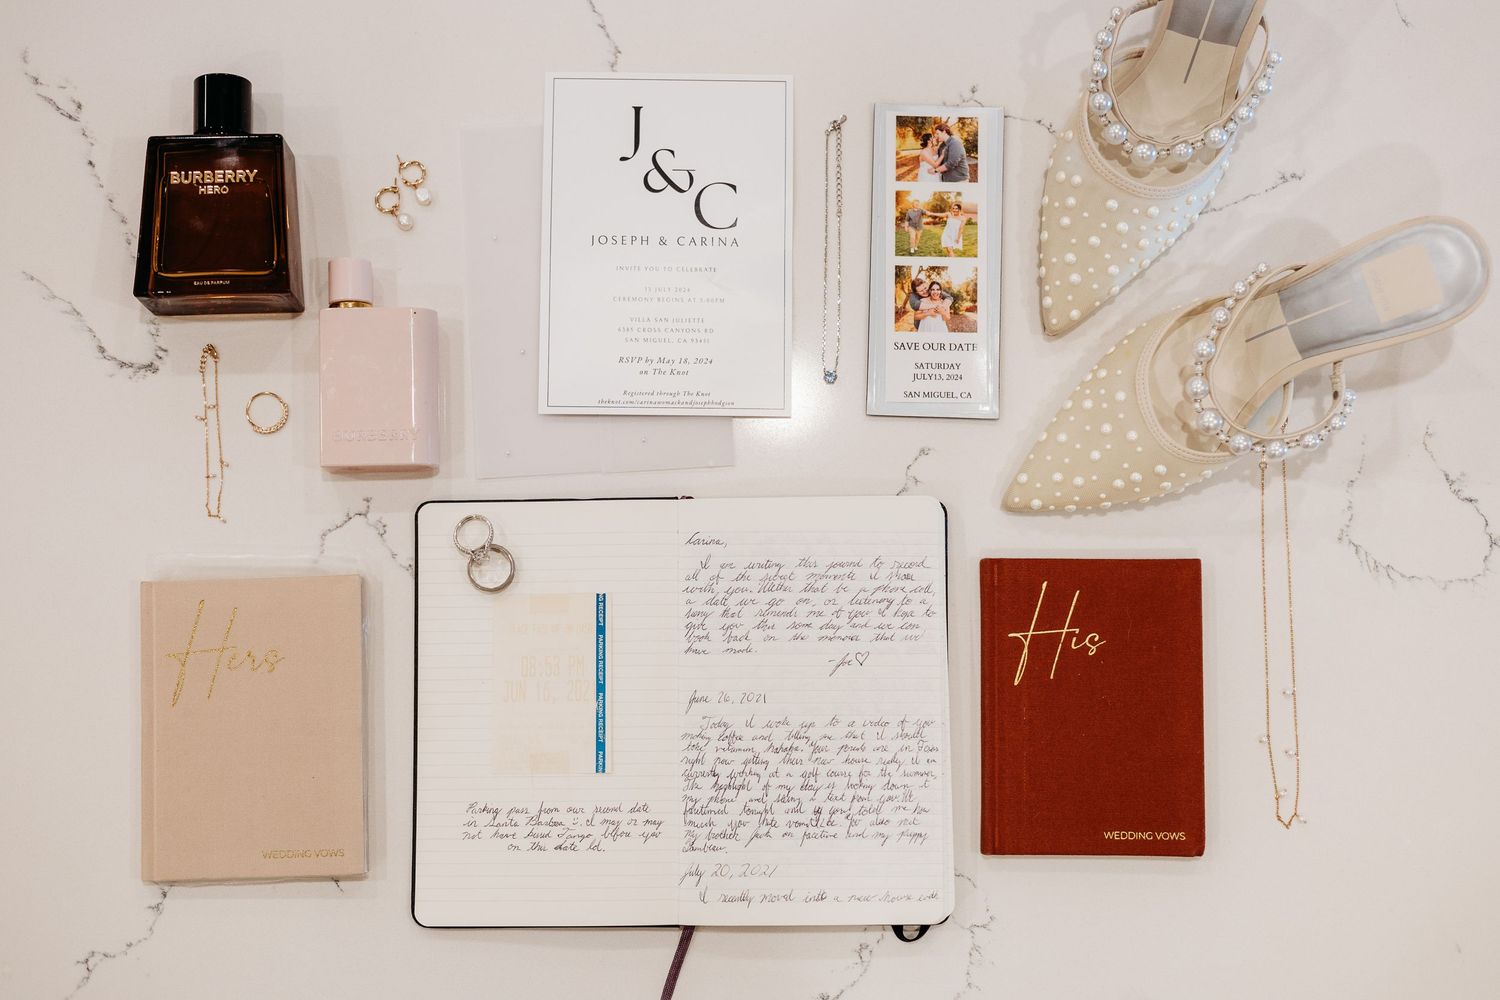 BURBERRY
HERO
EAU DE PARFUM
BURBERRY
J
&
C
JOSEPH & CARINA
INVITE YOU TO CELEBRATE
13 JULY 2024
CEREMONY BEGINS AT 5:00PM
VILLA SAN JULIETTE
6385 CROSS CANYONS RD
SAN MIGUEL, CA 93451
RSVP by May 18, 2024
on The Knot
Registered through The Knot
theknot.com/carinawomackandjosephhodgson
SAVE OUR DATE
SATURDAY
JULY13, 2024
SAN MIGUEL, CA
Hers
WEDDING VOWS
08:53 PM
JUN 13, 202
PARKING RECEIPT
PARKING RECEIPT
PARKING RECEIPT
Parking pass from our second date
in Santa Barbara :). I may or may
not have hired Tango before you
on this date lol.
Carina,
I am writing this journal to record
all of the secret moments I share
with you. Wether that be a phone call,
a date we go on, or listening to a
song that reminds me of you. I hope to
give you this some day and we can
look back on the memories that we
have made.
-Joe♡
June 26, 2021
Today I woke up to a video of you
making coffee and telling me that I should
take vitamins, hahaha. Your parents are in Texas
right now getting their new house ready. I am
currently working at a golf course for the summer.
The highlight of my day is looking down at
my phone and seeing a text from you. We
facetimed tonight and you told me how
much you hate
You also met
my brother Jack on facetime and my puppy
July 20, 2021
I recently moved into a new house with
His
WEDDING VOWS